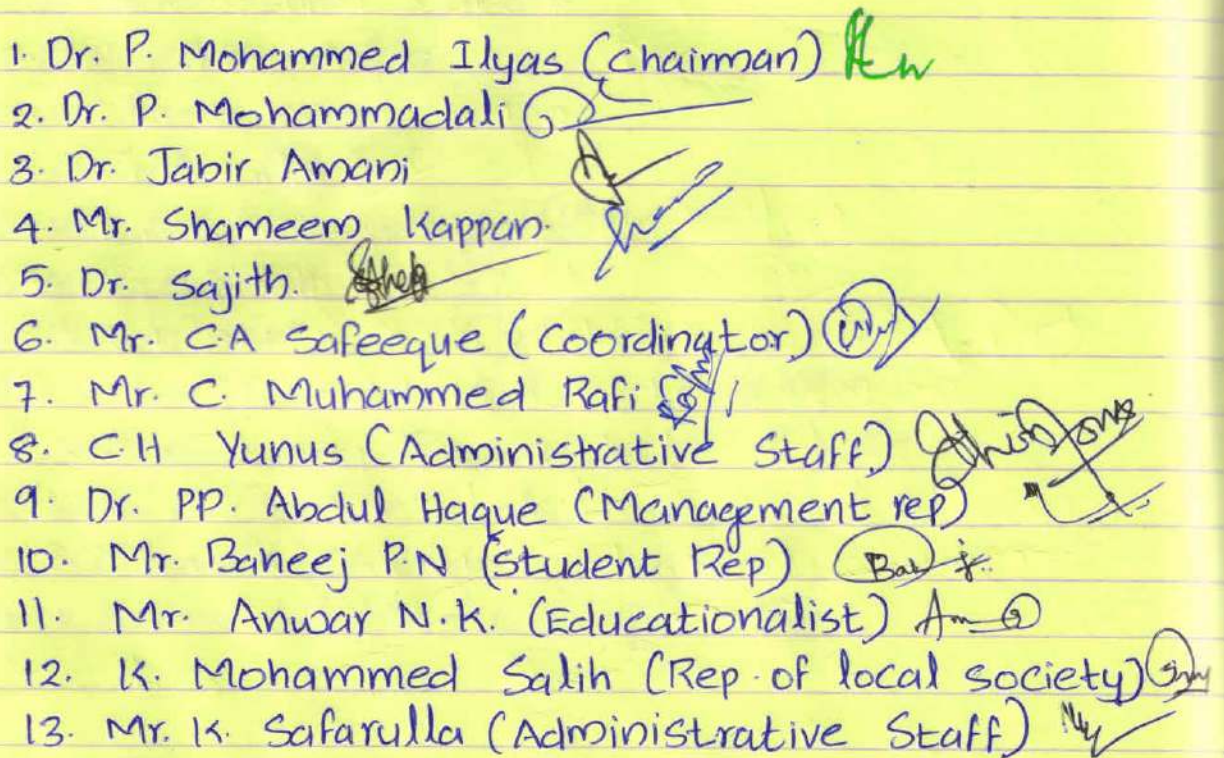 1. Dr. P. Mohammed Ilyas (Chairman)
2. Dr. P. Mohammadali
3. Dr. Jabir Amani
4. Mr. Shameem Kappan.
5. Dr. Sajith.
6. Mr. C.A Safeeque (Coordinator)
7. Mr. C. Muhammed Rafi
8. C.H Yunus (Administrative Staff)
9. Dr. PP. Abdul Haque (Management rep)
10. Mr. Baheej P.N (Student Rep)
11. Mr. Anwar N.K. (Educationalist)
12. K. Mohammed Salih (Rep. of local society)
13. Mr. K. Safarulla (Administrative Staff)